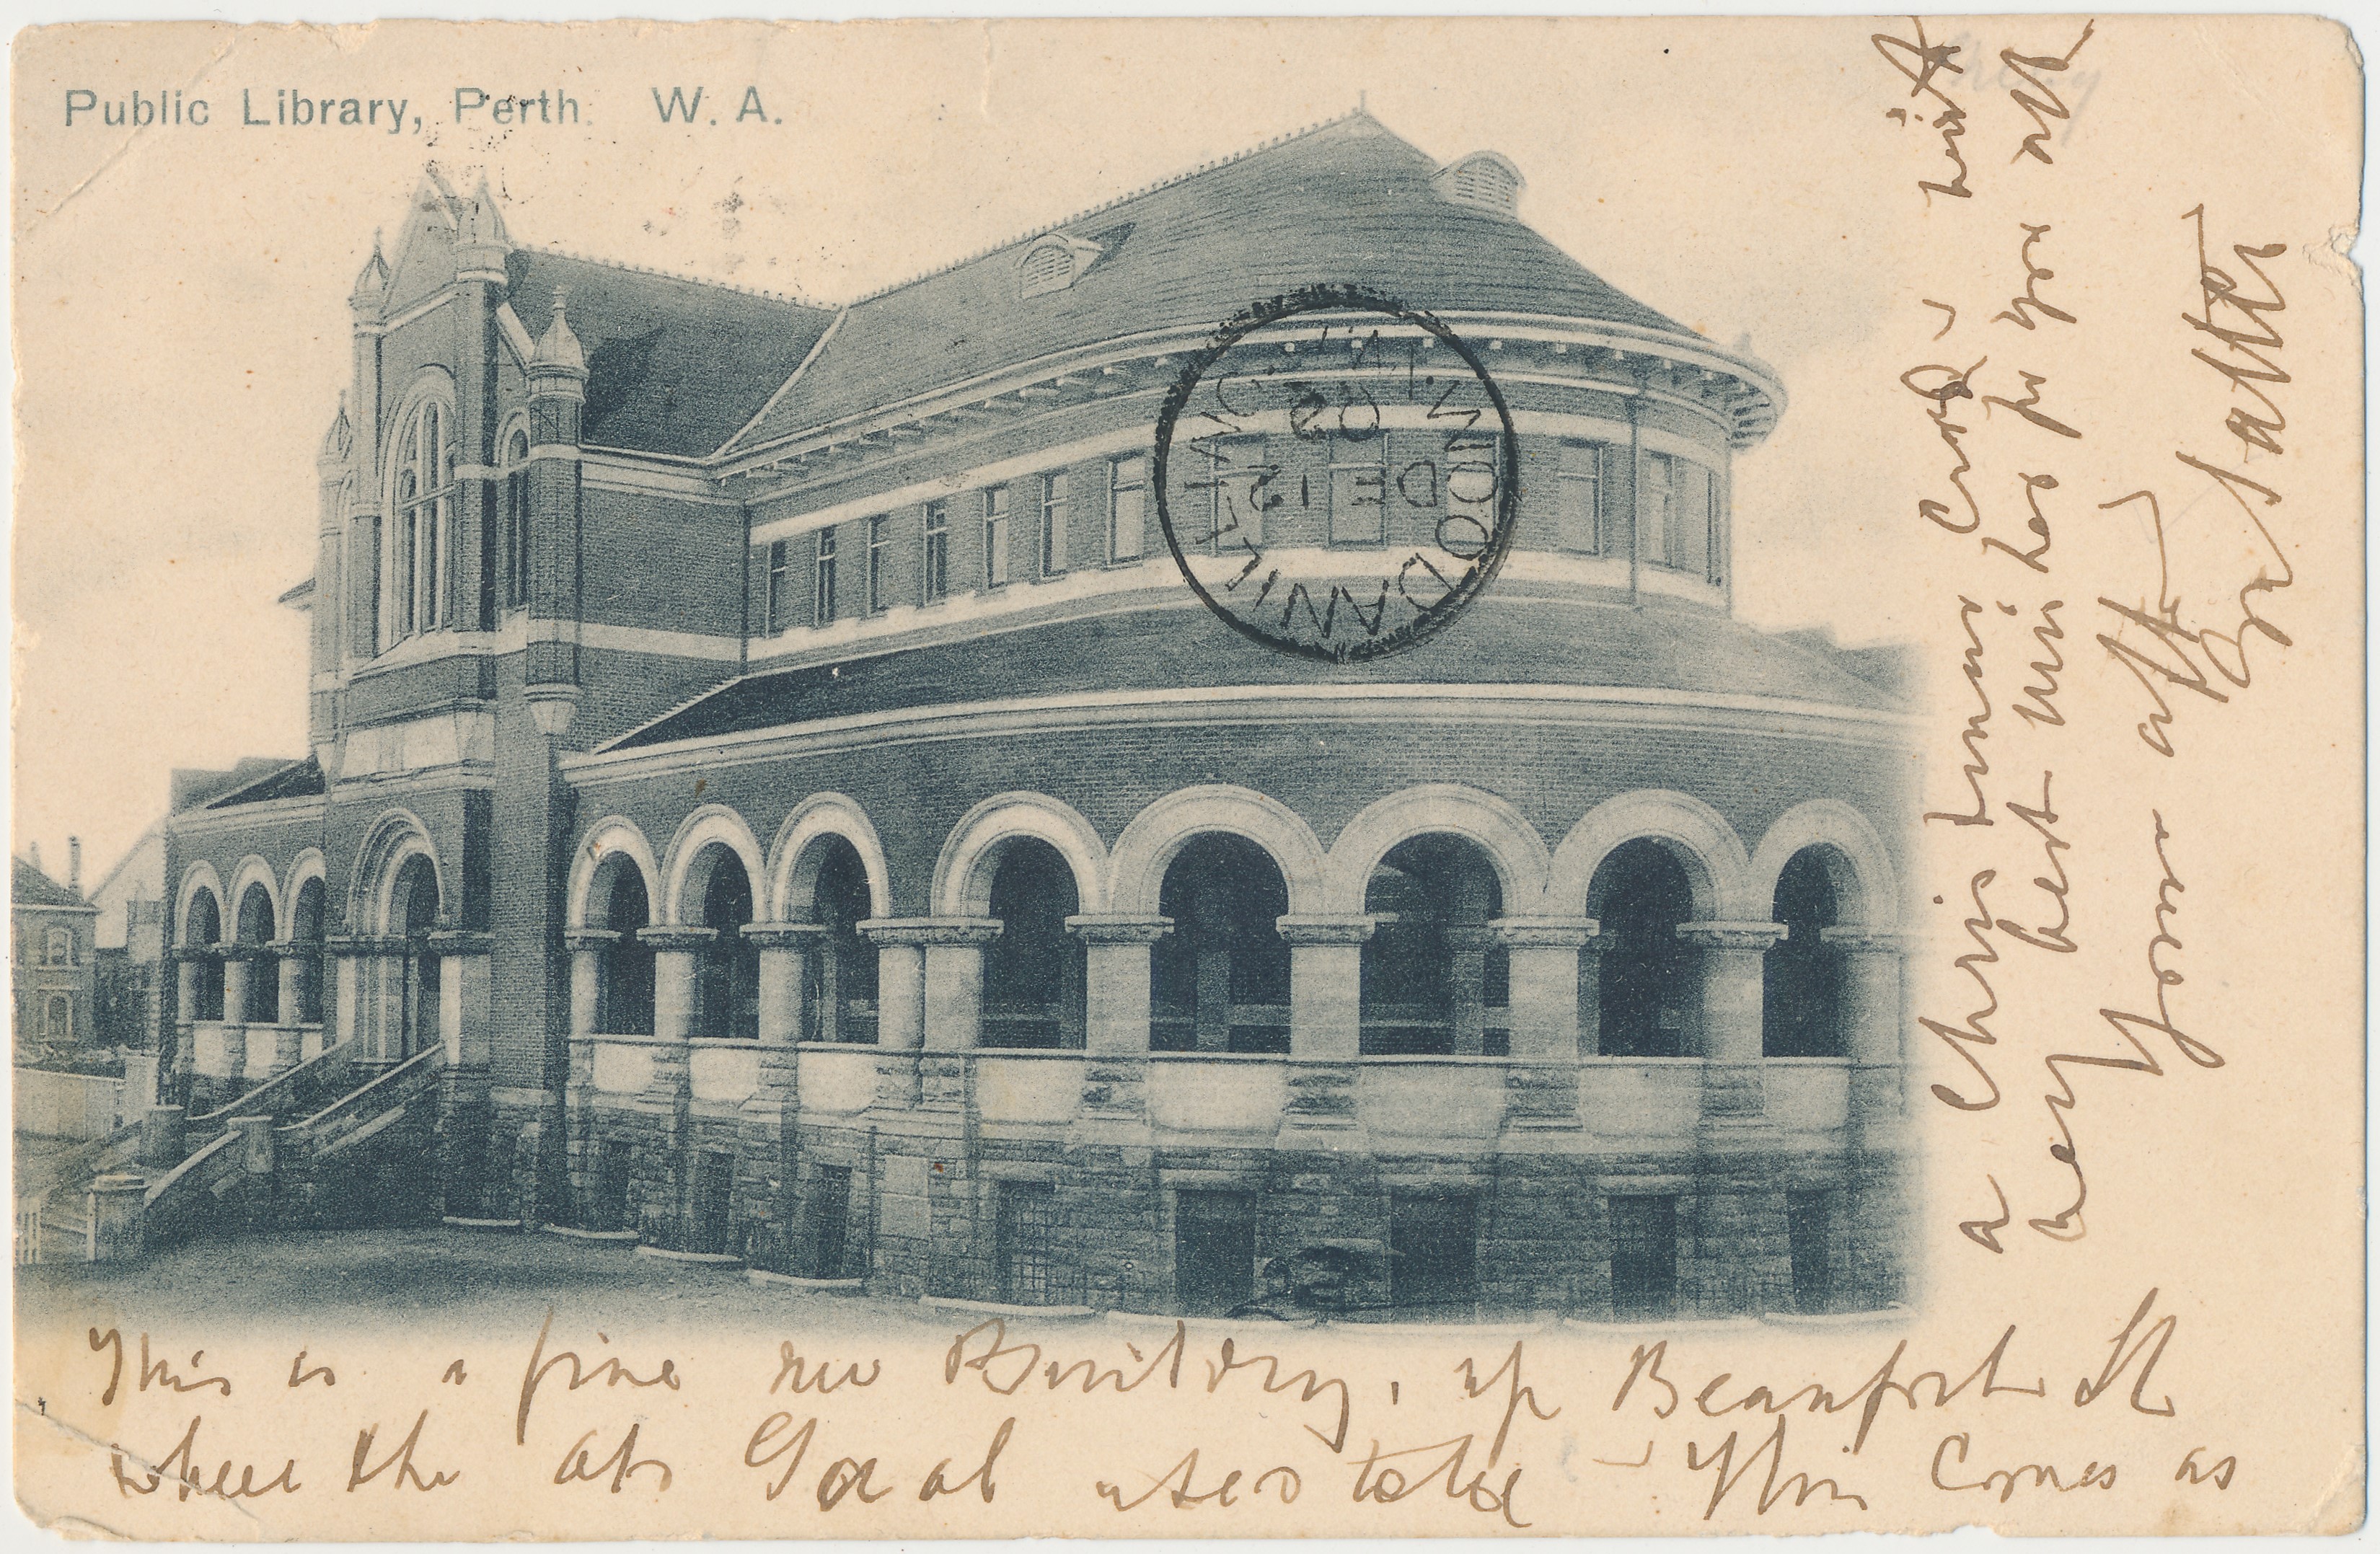 Public Library, Perth. W. A.
WOODANILLING W.A
DE 12
02
This is a fine new Building, up Beaufort St
where the old Goal used to be - This comes as
a Christmas Card with
very best wishes for you all
Yours